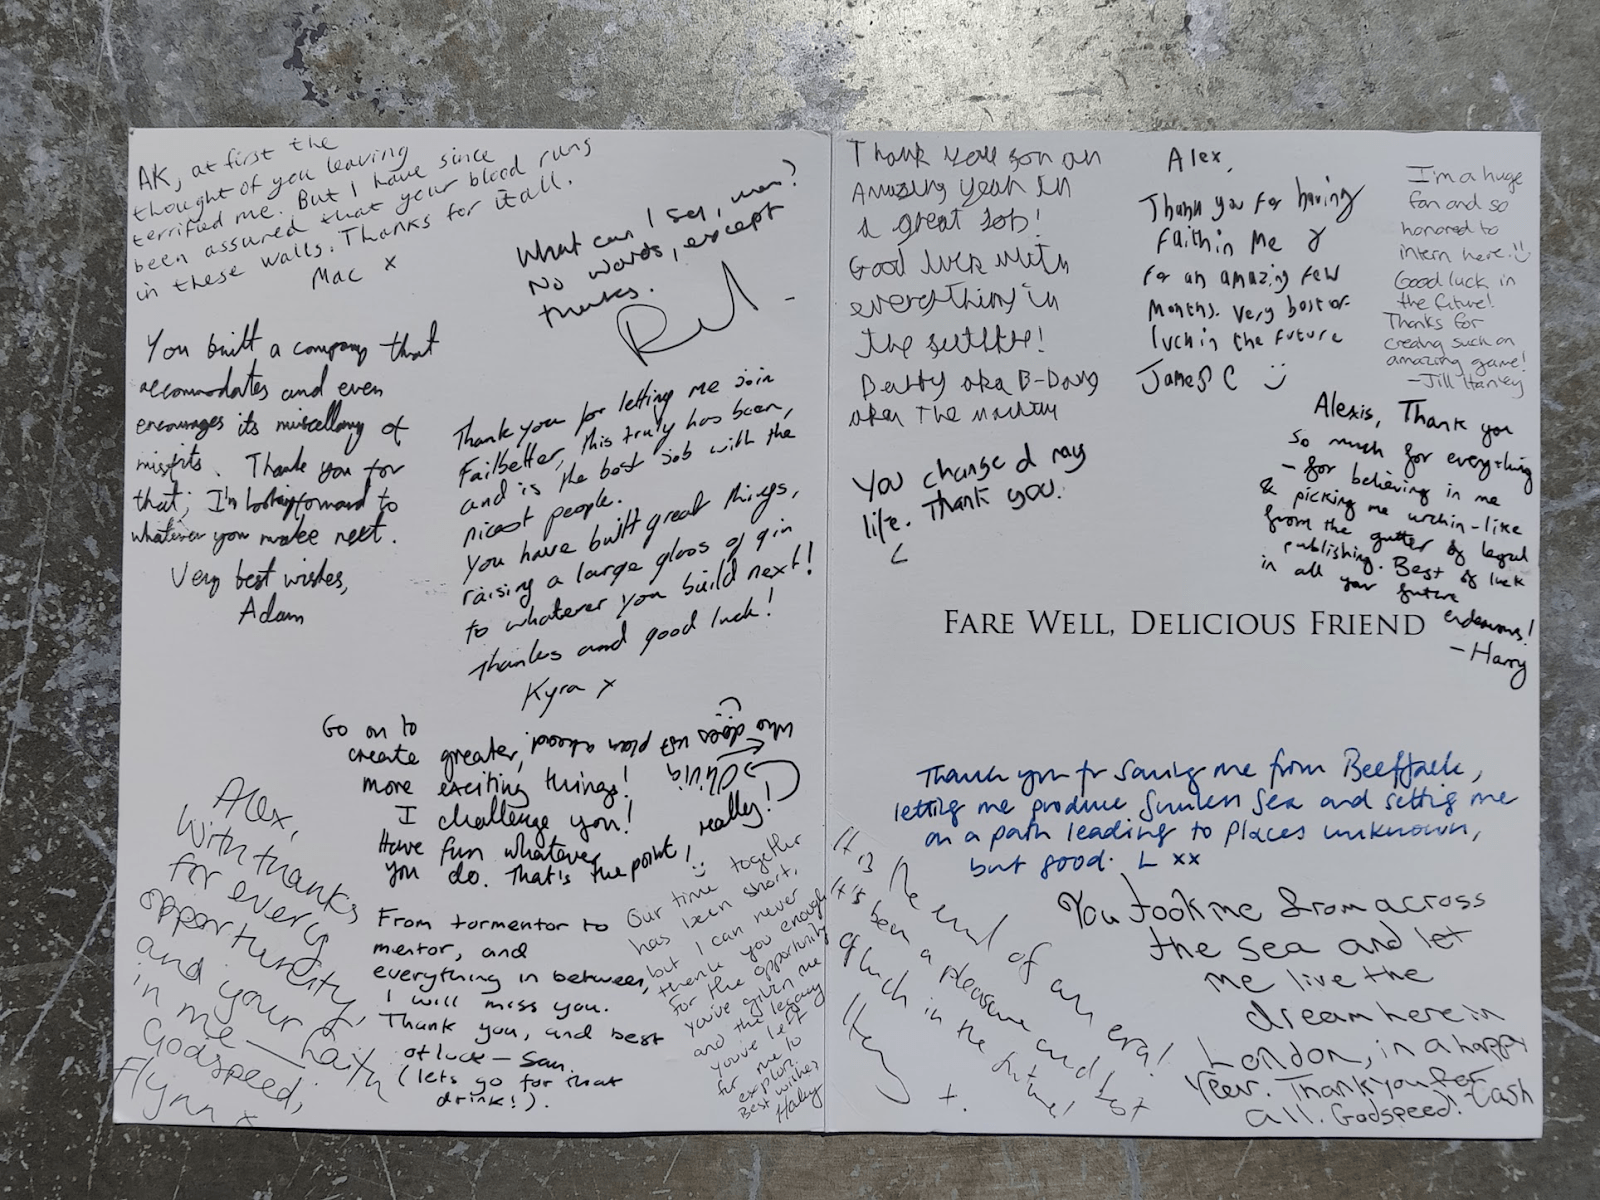 AK, at first the
thought of you leaving
terrified me. But I have since
been assured that your blood runs
in these walls. Thanks for it all.
Mac x
What can I say, man?
No words, except
thanks.
You built a company that
accommodates and even
encourages its miscellany of
misfits. Thank you for
that; I'm looking forward to
whatever you make next.
Very best wishes,
Adam
Thank you for letting me join
Failbetter, this truly has been,
and is the best job with the
nicest people.
You have built great things,
raising a large glass of gin
to whatever you build next!
Thanks and good luck!
Kyra x
Go on to
create greater,
more exciting things!
I challenge you!
Have fun whatever
you do. That's the point, really!
Olivia
who does not plan ahead
Alex,
With thanks
for every
opportunity,
and your faith
in me —
Godspeed,
Flynn x
From tormentor to
mentor, and
everything in between,
I will miss you.
Thank you, and best
of luck —
(lets go for that
drink!).
Our time together
has been short,
but I can never
thank you enough
for the opportunity
you've given me
and the legacy
you've left
for me to
explore.
Best wishes
Haley
Thank you son an
Amazing year in
a great Job!
Good luck with
everything in
the
aka B-Dawg
aka The
You changed my
life. Thank you.
L
Alex,
Thank you for having
faith in me &
for an amazing few
months. Very best of
luck in the future
James C :)
I'm a huge
fan and so
honored to
intern here. :)
Good luck in
the future!
Thanks for
creating such an
amazing game!
- Jill Harvey
Alexis, Thank you
so much for everything
- for believing in me
& picking me urchin-like
from the gutter of legal
publishing. Best of luck
in all your future
endeavours!
- Harry
FARE WELL, DELICIOUS FRIEND
Thank you for saving me from Beefjack,
letting me produce Sunless Sea and setting me
on a path leading to places unknown,
but good. L xx
It is the end of an era!
It's been a pleasure and best
of luck in the future!
x.
You took me from across
the sea and let
me live the
dream here in
London, in a happy
year. Thank you for
all. Godspeed! - Cash